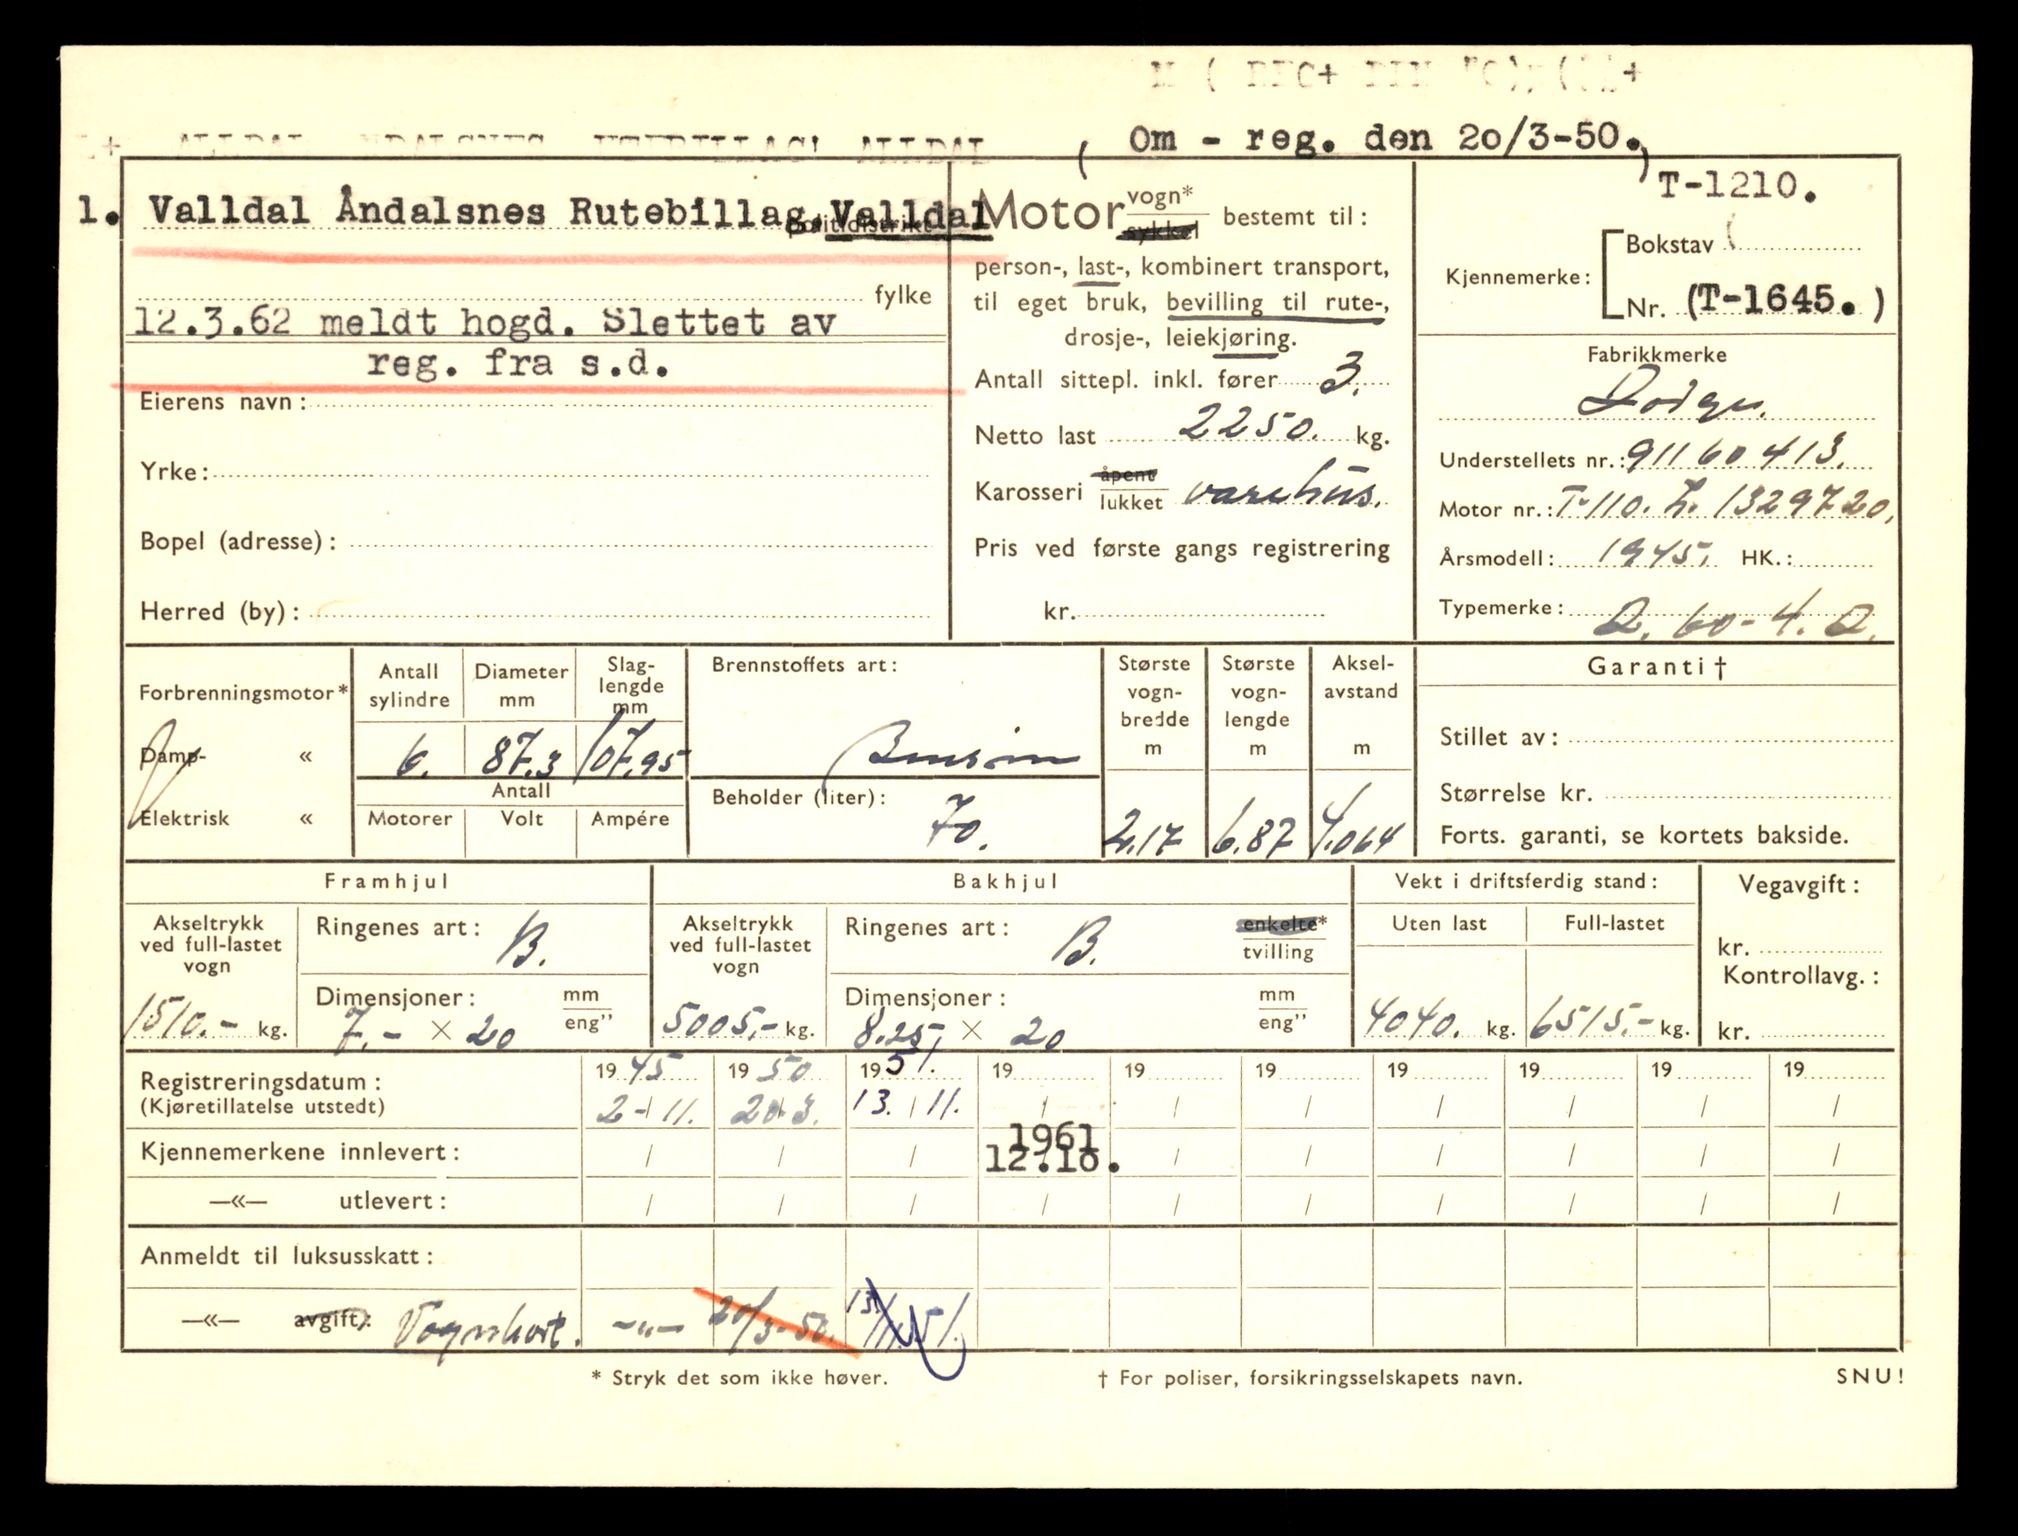 ( Om - reg. den 20/3-50.)
1. Valldal Åndalsnes Rutebillag, Valldal
politidistrikt
fylke
12.3.62 meldt hogd. Slettet av
reg. fra s.d.
Eierens navn:
Yrke:
Bopel (adresse):
Herred (by):
Motor vogn* sykkel bestemt til:
person-, last-, kombinert transport,
til eget bruk, bevilling til rute-,
drosje-, leiekjøring.
Antall sittepl. inkl. fører 3.
Netto last 2250. kg.
Karosseri åpent lukket varehus.
Pris ved første gangs registrering
kr.
T-1210.
Kjennemerke: Bokstav
Nr. (T-1645.)
Fabrikkmerke
Dodge.
Understellets nr.: 91160413.
Motor nr.: T-110. L. 1329720.
Årsmodell: 1945. HK.:
Typemerke: D. 60-4. D.
Forbrenningsmotor*
Damp- «
Elektrisk «
Antall sylindre 6.
Diameter mm 87.3
Slaglengde mm 107.95
Antall
Motorer Volt Ampére
Brennstoffets art:
Bensin
Beholder (liter):
70.
Største vognbredde m 2,17
Største vognlengde m 6.87
Akselavstand m 4.064
Garanti †
Stillet av:
Størrelse kr.
Forts. garanti, se kortets bakside.
Framhjul
Akseltrykk ved full-lastet vogn 1510.- kg.
Ringenes art: B.
Dimensjoner: mm eng"
7.- × 20
Bakhjul
Akseltrykk ved full-lastet vogn 5005,- kg.
Ringenes art: B. enkelte* tvilling
Dimensjoner: mm eng"
8.25, × 20
Vekt i driftsferdig stand:
Uten last Full-lastet
4040. kg. 6515.- kg.
Vegavgift:
kr.
Kontrollavg.:
kr.
Registreringsdatum: 19 45 19 50 19 51. 19 19 19 19 19 19 19
(Kjøretillatelse utstedt) 2-/11. 20/3. 13. / 11. / / / / / / /
1961
Kjennemerkene innlevert: / / / 12.10. / / / / / /
—«— utlevert: / / / / / / / / / /
Anmeldt til luksusskatt:
—«— avgift: Vognkort. -"- 20/3-50. 13/11.51.
* Stryk det som ikke høver.
† For poliser, forsikringsselskapets navn.
SNU!